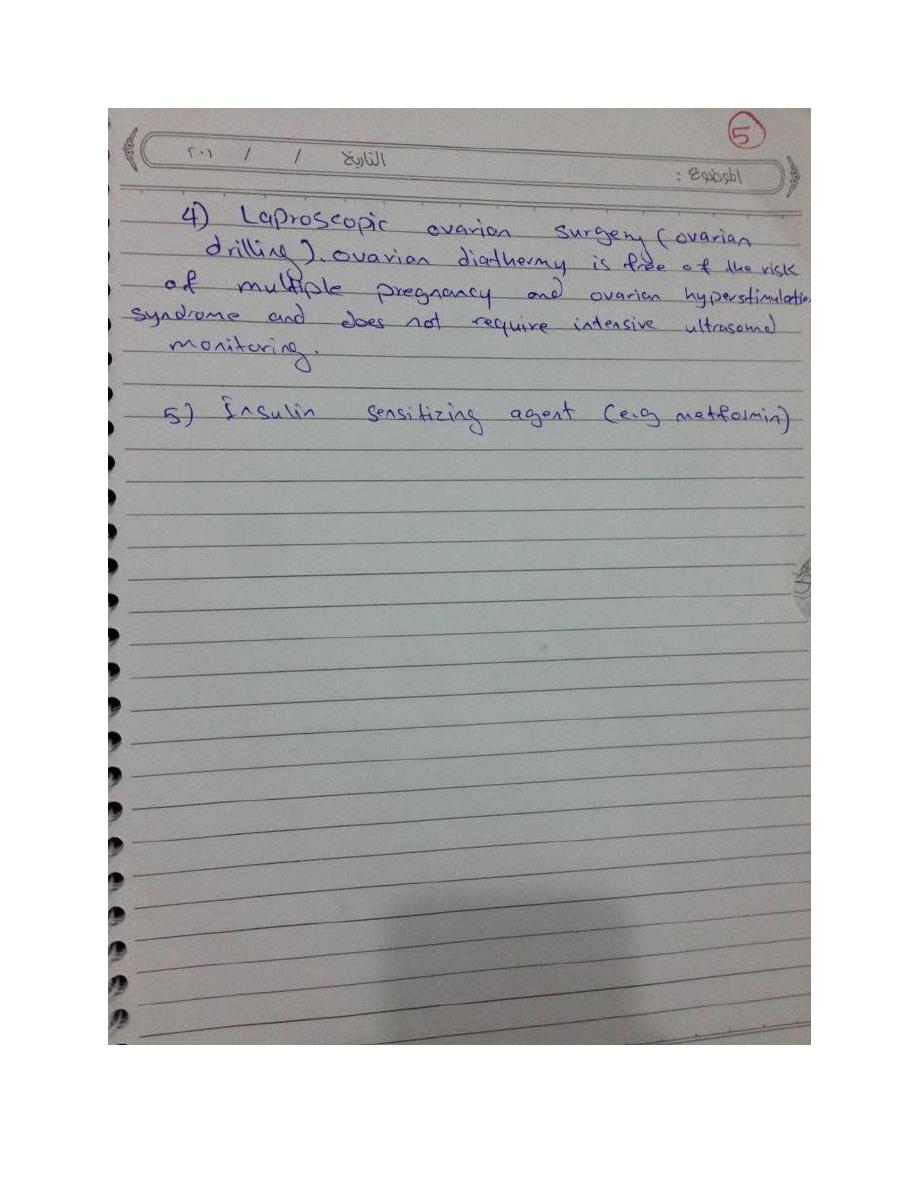 5
الموضوع :
التاريخ / / ٢٠١
4) Laproscopic ovarian surgery (ovarian
drilling). ovarian diathermy is free of the risk
of multiple pregnancy and ovarian hyperstimulation
syndrome and does not require intensive ultrasound
monitoring.
5) Insulin sensitizing agent (e.g metformin)